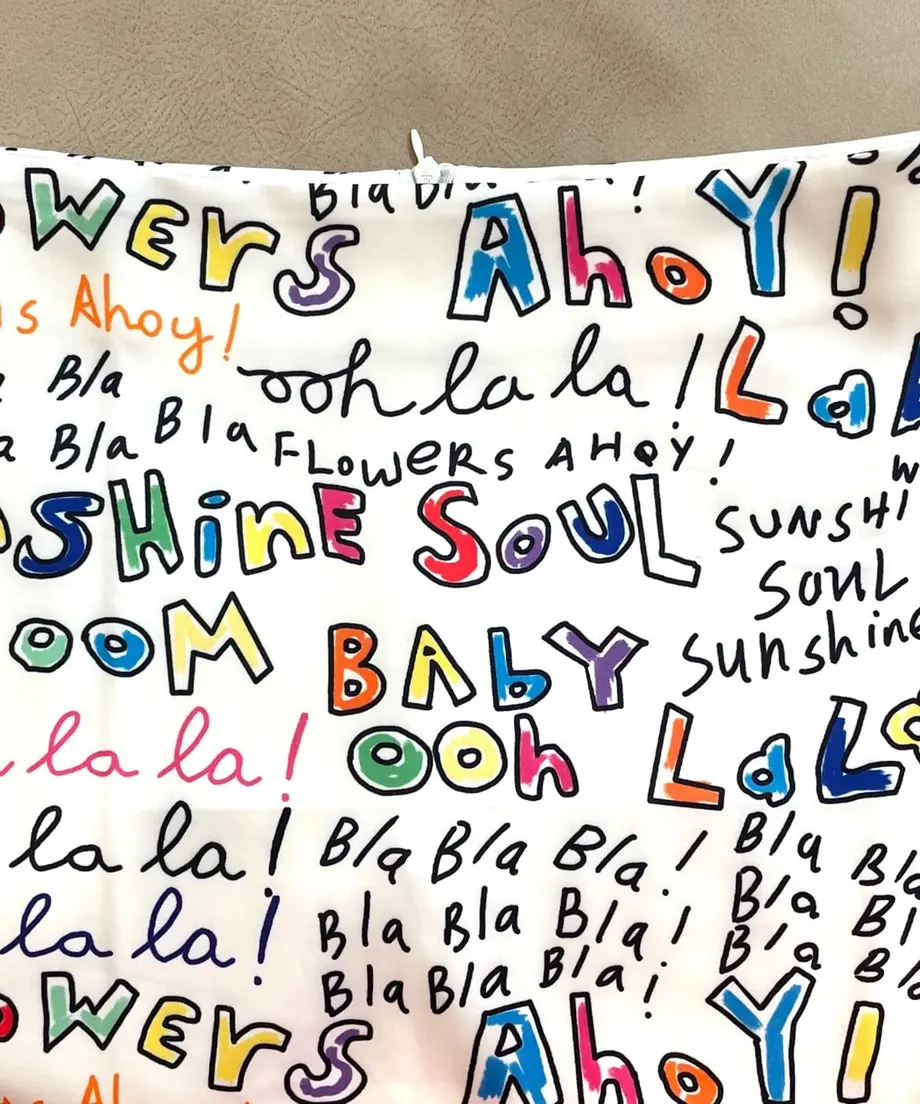 Bla Bla !
wers AhoY!
s Ahoy!
Bla
ooh la la !
La
Bla Bla
FLoweRs AHoY !
SHinE SOUL
SUNSHI
SOUL
OOM BAbY
Sunshine
la la!
OOh LaL
la la! Bla Bla Bla! Bla Bla
Bla Bla Bla! Bla
la la!
Bla Bla Bla! Bla Bla
wers AhoY!